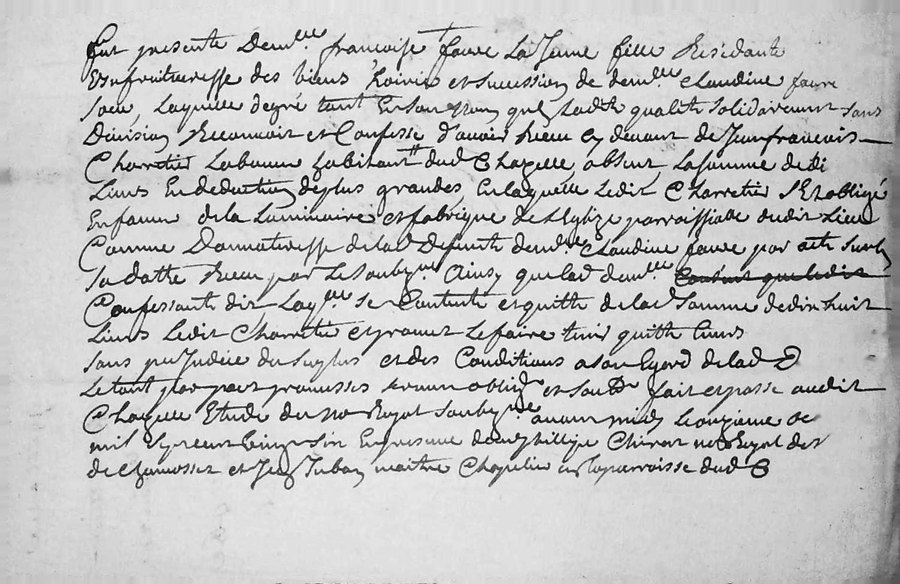 fut presente Dem.lle francoise faure La Jeune fille Residante
Usufruituresse des biens hoiries et sucession de dem.lle Claudine faure
soeur, Laquelle de gré tant En son Nom que lad.te qualité solidairement sans
Division Reconnoit et Confesse d'avoir Receu Cy devant de Jean francois
Charretier habitant dud Chazelle absent La somme de
Livres En deduction de plus grandes En laquelle Ledit Charretier s'Et obligé
En faveur de la Luminaire et fabrique de L'Eglize parroissialle dudit Lieu
Comme Donnateresse de lad Defunte dem.lle Claudine faure par acte sur
Sa datte Receu par Le Soubz.né Ainsy que lad dem.lle
Confessante dit Laq.lle se Contente et quitte de lad Somme de dix huit
Livres Ledit Charretier et promet Le faire tenir quitte Envers
sans prejudice du surplus et des Conditions a son Egard de lad D
Le tout par pact promesses serment oblig et sou fait et passé audit
Chazelle Etude du no.re Royal Soubz.né avant midy Le onzieme
mil sept cent vingt six En presence de Philippe Not Royal
de Chamosset et Jean maitre Chapelier de la parroisse dud C